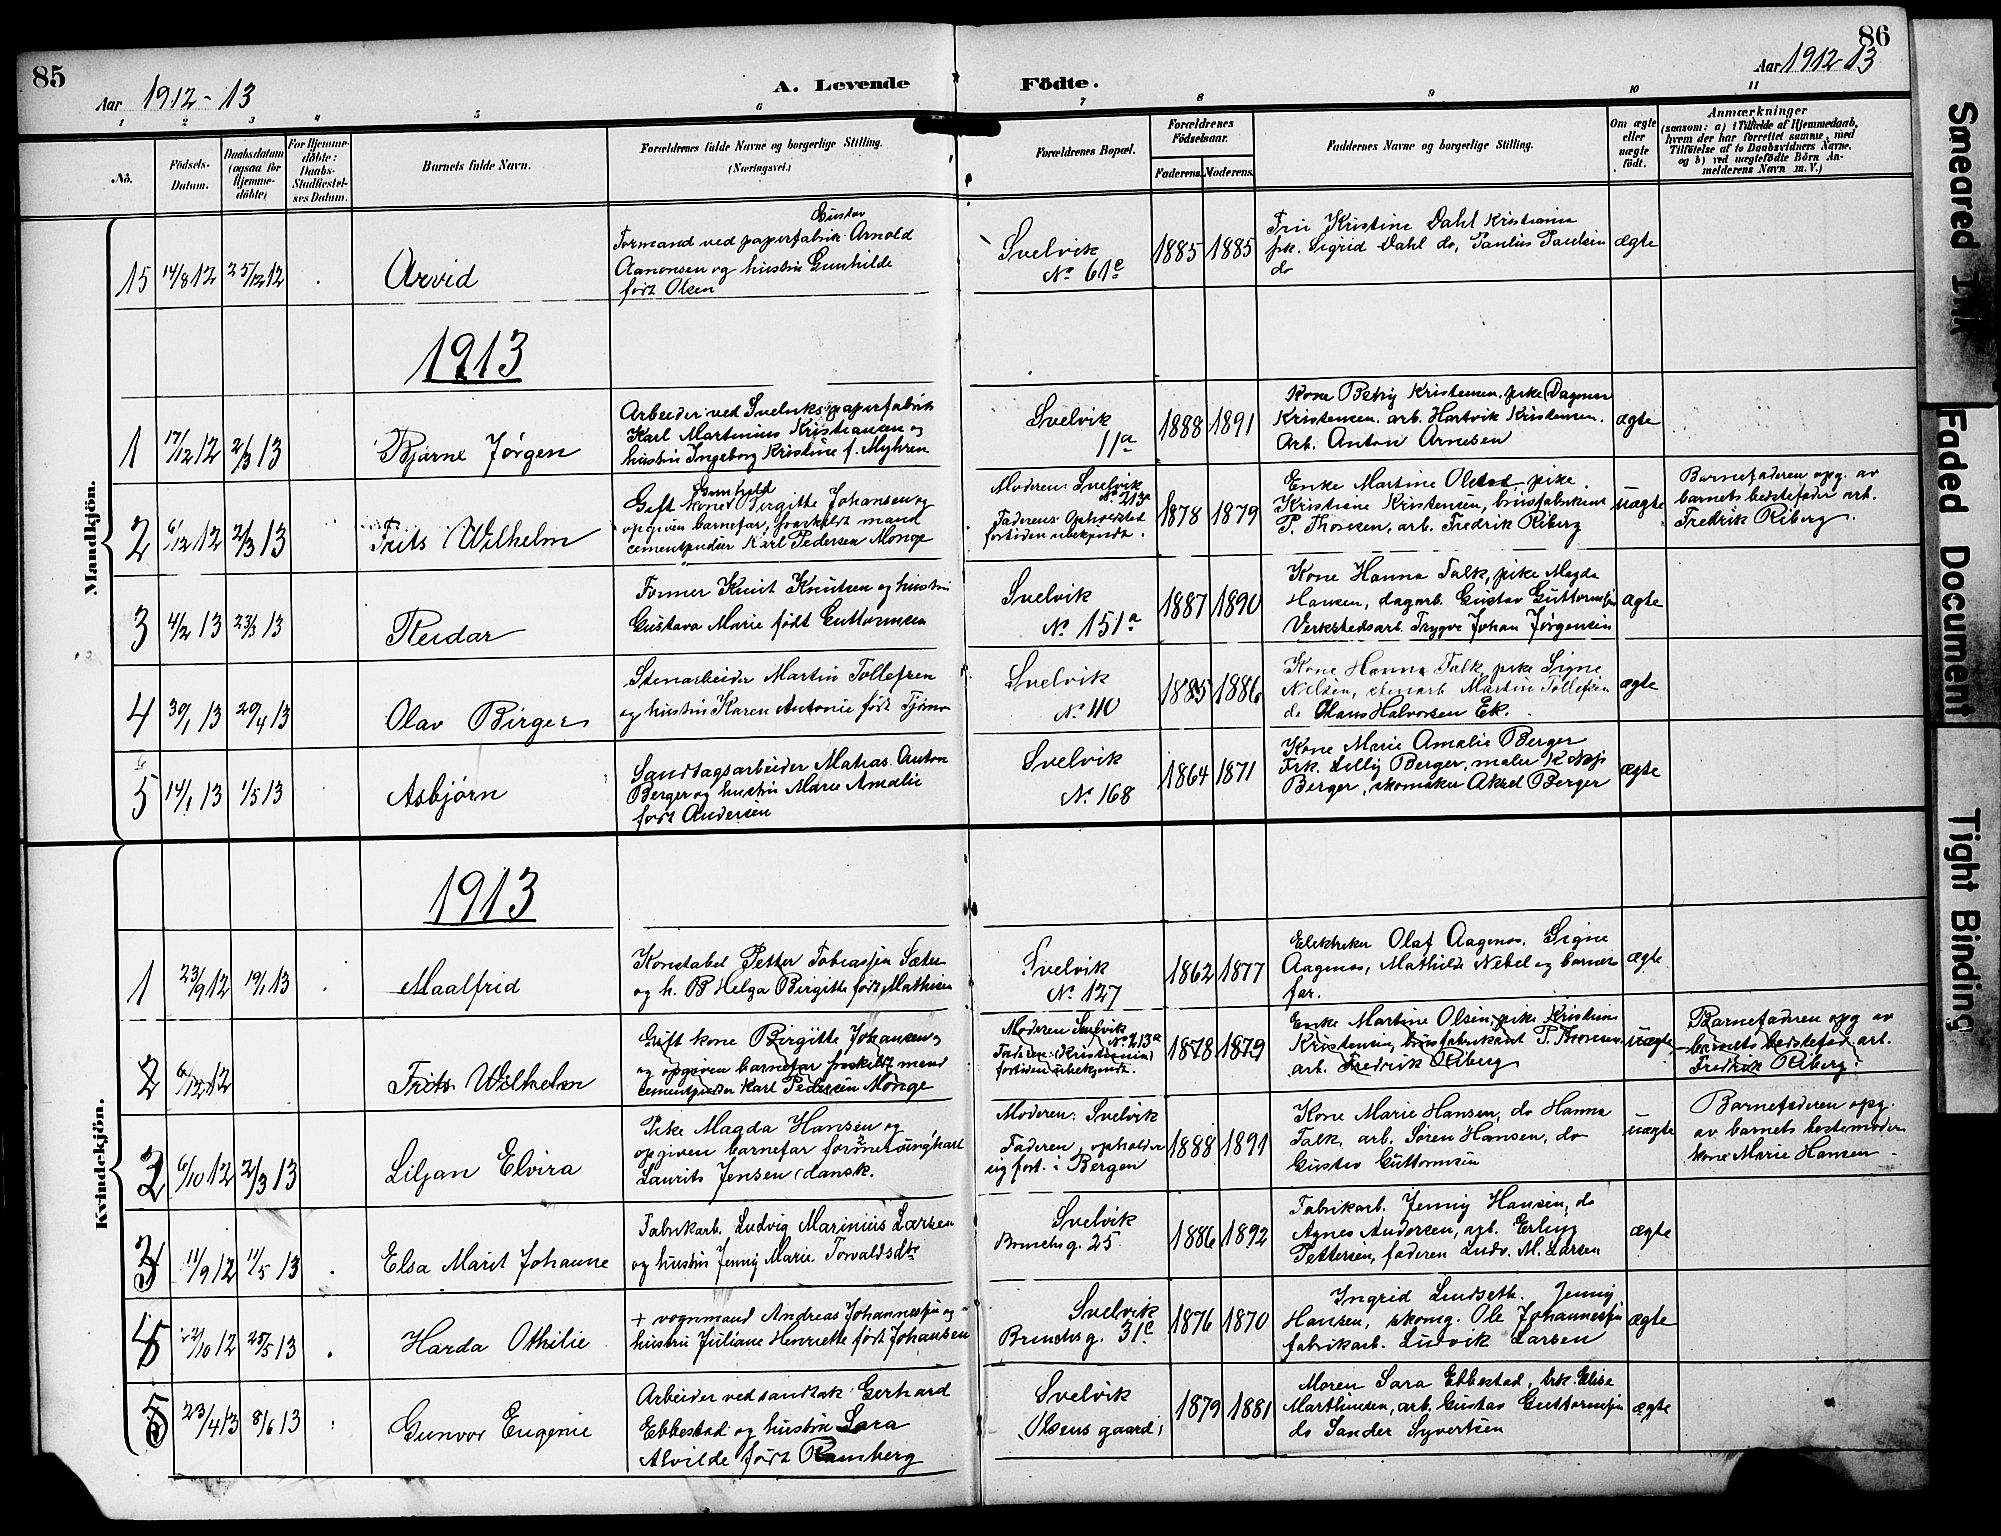 85
86
Aar 1912-13
A. Levende Födte.
Aar 1912-13
1 2 3 4 5 6 7 8 9 10 11
No.
Födsels-
Datum.
Daabsdatum
(ogsaa for
Hjemme-
döbte)
For Hjemme-
döbte:
Daabs-
Stadfæstel-
ses Datum.
Barnets fulde Navn.
Forældrenes fulde Navne og borgerlige Stilling.
(Næringsvei.)
Forældrenes Bopæl.
Forældrenes
Födselsaar.
Faderens. Moderens.
Faddernes Navne og borgerlige Stilling.
Om ægte
eller
uægte
födt.
Anmærkninger
(saasom: a) i Tilfælde af Hjemmedaab,
hvem der har forrettet samme, med
Tilföielse af to Daabsvidners Navne,
og b) ved uægtefödte Börn An-
melderens Navn m. V.)
Mandkjön.
15 14/8 12 25/12 12 Arvid
Gustav
Formand ved papirfabrik Arnold
Aanonsen og hustru Gunhilde
født Olsen
Svelvik
No. 61c
1885 1885
Fru Kristine Dahl Kristiania
frk. Sigrid Dahl do, Paulus Paulsen
do
ægte
1913
1 17/12 12 2/3 13 Bjarne Jørgen
Arbeider ved Svelviks papirfabrik
Karl Martinius Kristiansen og
hustru Ingeborg Kristine f. Myhren
Svelvik
11a
1888 1891
Kone Betzy Kristensen, pike Dagmar
Kristensen, arb. Hartvik Kristensen.
Arb. Anton Arnesen
ægte
2 6/12 12 2/3 13 Frits Wilhelm
Gift kone Birgitte Johansen og
opgiven barnefar, fraskilt mand
cementpudser Karl Pedersen Monge
Moderen: Svelvik
No. 213a
Faderens Opholdsted
fortiden ubekjendt.
1878 1879
Enke Martine Olsen, pike
Kristiane Kristensen, brusfabrikant
P. Thoresen, arb. Fredrik Riberg
uægte
Barnefaderen opg. av
barnets bestefader arb.
Fredrik Riberg.
3 4/2 13 23/3 13 Reidar
Former Knut Knutsen og hustru
Gustava Marie født Guttormsen
Svelvik
No. 151a
1887 1890
Kone Hanna Falk, pike Magda
Hansen, dagarb. Gustav Guttormsen
Verkstedsarb. Trygve Johan Jørgensen
ægte
4 30/1 13 20/4 13 Olav Birger
Stenarbeider Martin Tollefsen
og hustru Karen Antonie født Tjømø
Svelvik
No. 110
1885 1886
Kone Hanna Falk, pike Signe
Nielsen, stenarb Martin Tollefsen
do Hans Halvorsen Ek.
ægte
5 14/1 13 1/5 13 Asbjørn
Sandtagsarbeider Matias Anton
Berger og hustru Marie Amalie
født Andersen
Svelvik
No. 168
1864 1871
Kone Marie Amalie Berger
Frk. Lilly Berger, maler
Berger, skomaker Aksel Berger
ægte
Kvindekjön.
1913
1 23/9 12 19/1 13 Maalfrid
Konstabel Petter Tobiassen Sæter
og h. B Helga Birgitte født Mathisen
Svelvik
No. 127
1862 1877
Elektriker Olaf Aagenæs, Signe
Aagenæs, Mathilde Nebel og barnets
far.
ægte
2 6/12 12 Frits Wilhelm
Gift kone Birgitte Johansen
og opgiven barnefar fraskilt mand
cementpudser Karl Pedersen Monge
Moderen Svelvik
No. 213a
Faderen: (Kristiania)
fortiden ubekjendt.
1878 1879
Enke Martine Olsen, pike Kristiane
Kristensen, brusfabrikant P. Thoresen
arb. Fredrik Riberg
uægte
Barnefaderen opg av
barnets bestefad. arb.
Fredrik Riberg.
2 6/10 12 2/3 13 Liljan Elvira
Pike Magda Hansen og
opgiven barnefar former ungkarl
Laurits Jensen (dansk.
Moderen: Svelvik
Faderen opholder
sig fort. i Bergen
1888 1891
Kone Marie Hansen, do Hanna
Falk, arb. Søren Hansen, do
Gustav Guttormsen
uægte
Barnefaderen opg.
av barnets bestemoder
kone Marie Hansen
3 11/9 12 1/5 13 Elsa Marit Johanne
Fabrikarb. Ludvig Marinius Larsen
og hustru Jenny Marie Torvaldsdtr
Svelvik
25
1886 1892
Fabrikarb. Jenny Hansen, do
Agnes Andersen, arb. Erling
Pettersen, faderen Ludv. M. Larsen
ægte
4 22/10 12 25/5 13 Harda Othilie
+ vognmand Andreas Johannessen og
hustru Juliane Henriette født Johansen
Svelvik
31c
1876 1870
Ingrid Lindseth. Jenny
Hansen, skomg. Ole Johannessen
fabrikarb. Ludvik Larsen
ægte
5 23/4 13 8/6 13 Gunvor Eugenie
Arbeider ved sandtak Gerhard
Ebbestad og hustru Sara
Alvilde født Ramberg
Svelvik
Olsens gaard
1879 1881
Moren Sara Ebbestad, frk. Elise
Marthinsen, arb. Gustav Guttormsen
do Sander Syvertsen
ægte
Smeared Ink
Faded Document
Tight Binding